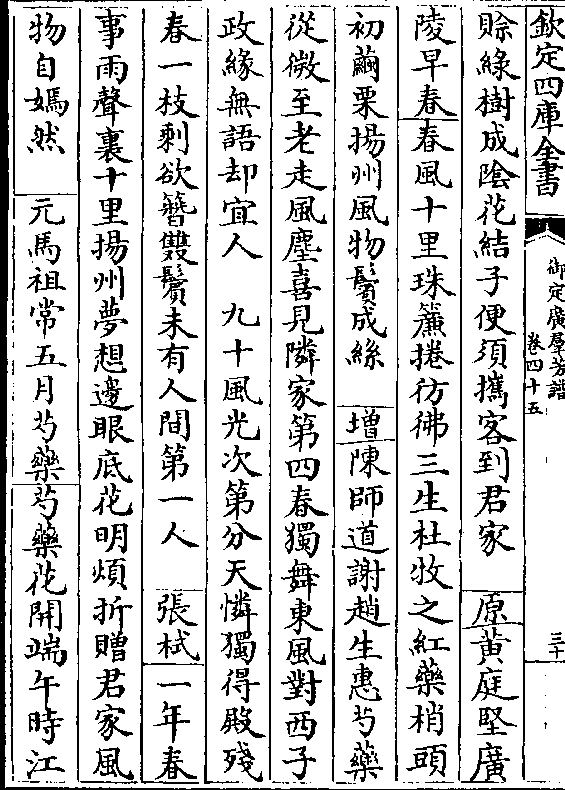 欽定四庫全書
御定廣羣芳譜
卷四十五
三十
賒綠樹成陰花結子便須攜客到君家　原黃庭堅廣
陵早春春風十里珠簾捲彷彿三生杜牧之紅藥梢頭
初繭栗揚州風物鬢成絲　增陳師道謝趙生惠芍藥
從微至老走風塵喜見隣家第四春獨舞東風對西子
政緣無語却宜人　九十風光次第分天憐獨得殿殘
春一枝剩欲簪雙鬢未有人間第一人　張栻一年春
事雨聲裏十里揚州夢想邊眼底花明煩折贈君家風
物自嫣然　元馬祖常五月芍藥芍藥花開端午時江